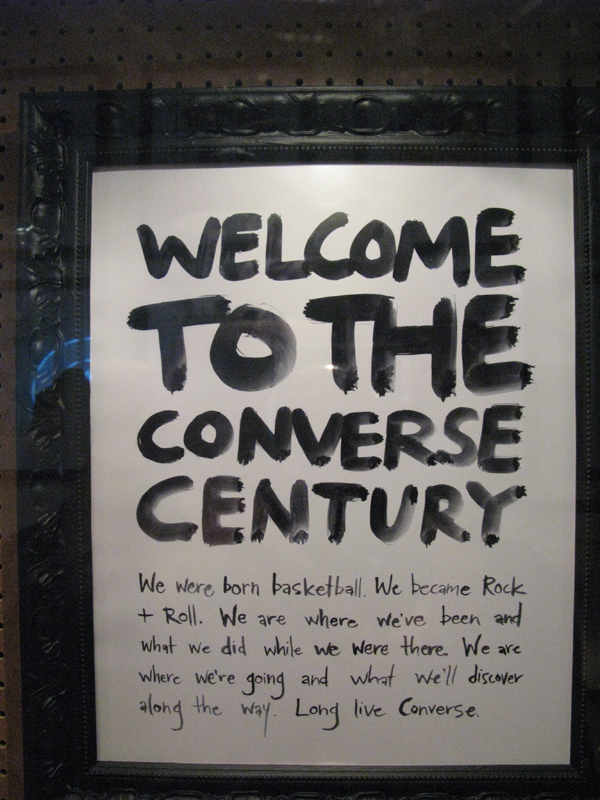 WELCOME
TO THE
CONVERSE
CENTURY
We were born basketball. We became Rock
+ Roll. We are where we've been and
what we did while we were there. We are
where we're going and what we'll discover
along the way. Long live Converse.